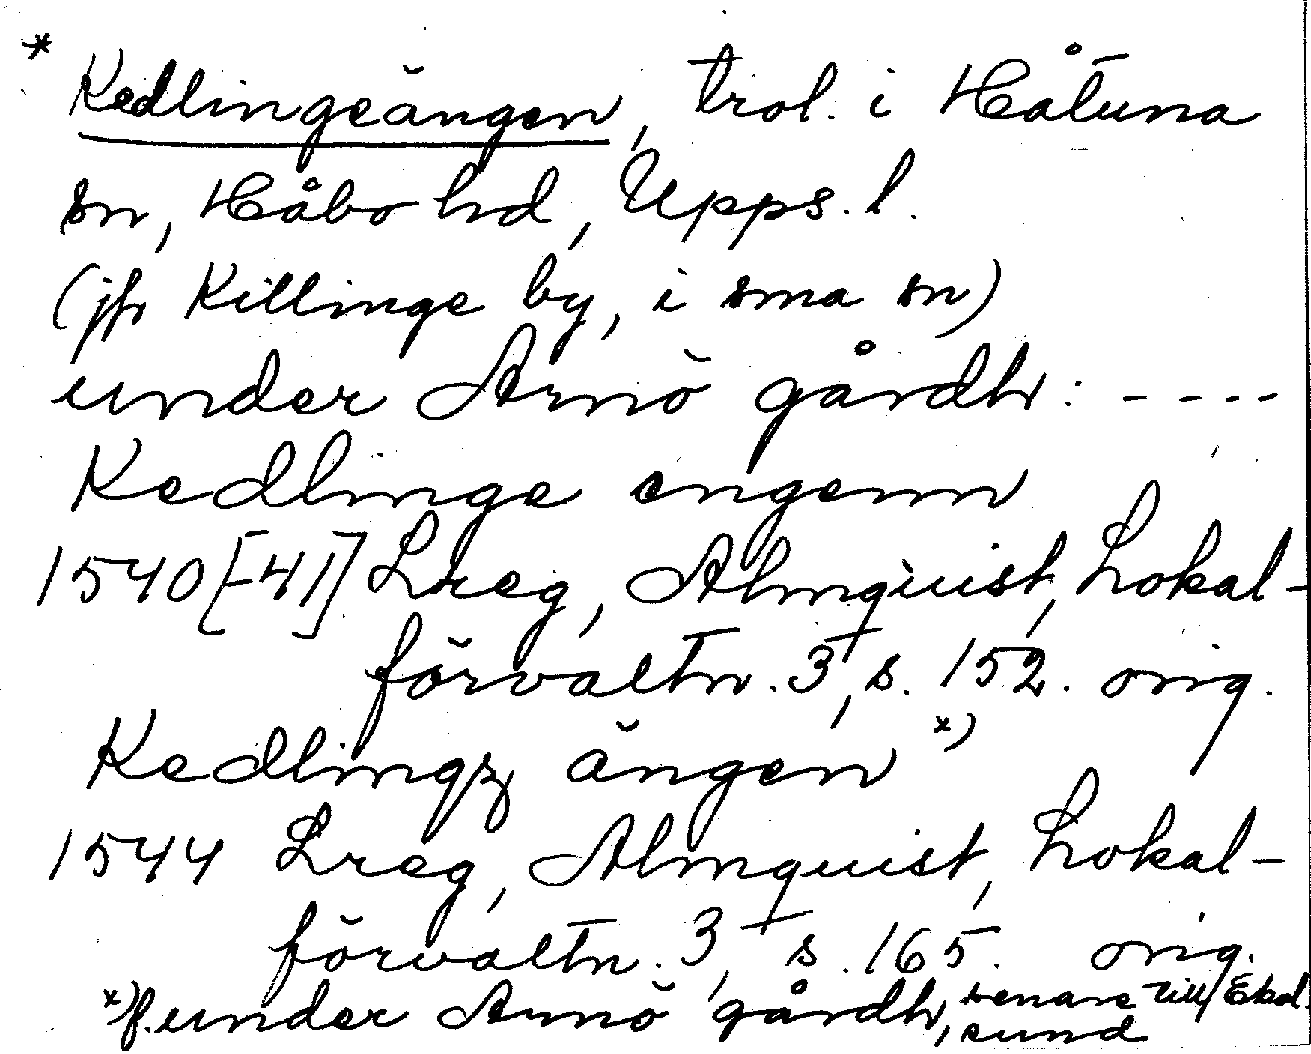 * Kedlingeängen, trol. i Håtuna
sn, Håbo hd, Upps. l.
(jfr Killinge by, i sma sn)
under Arnö gårdh: ----
Kedlinge engenn
1540[-41] Lreg, Almquist, Lokal-
förvaltn. 3, s. 152. orig.
Kedlingz ängen *)
1544 Lreg, Almquist, Lokal-
förvaltn. 3, s. 165. orig.
*) under Arnö gårdh, senare till Ekol
sund